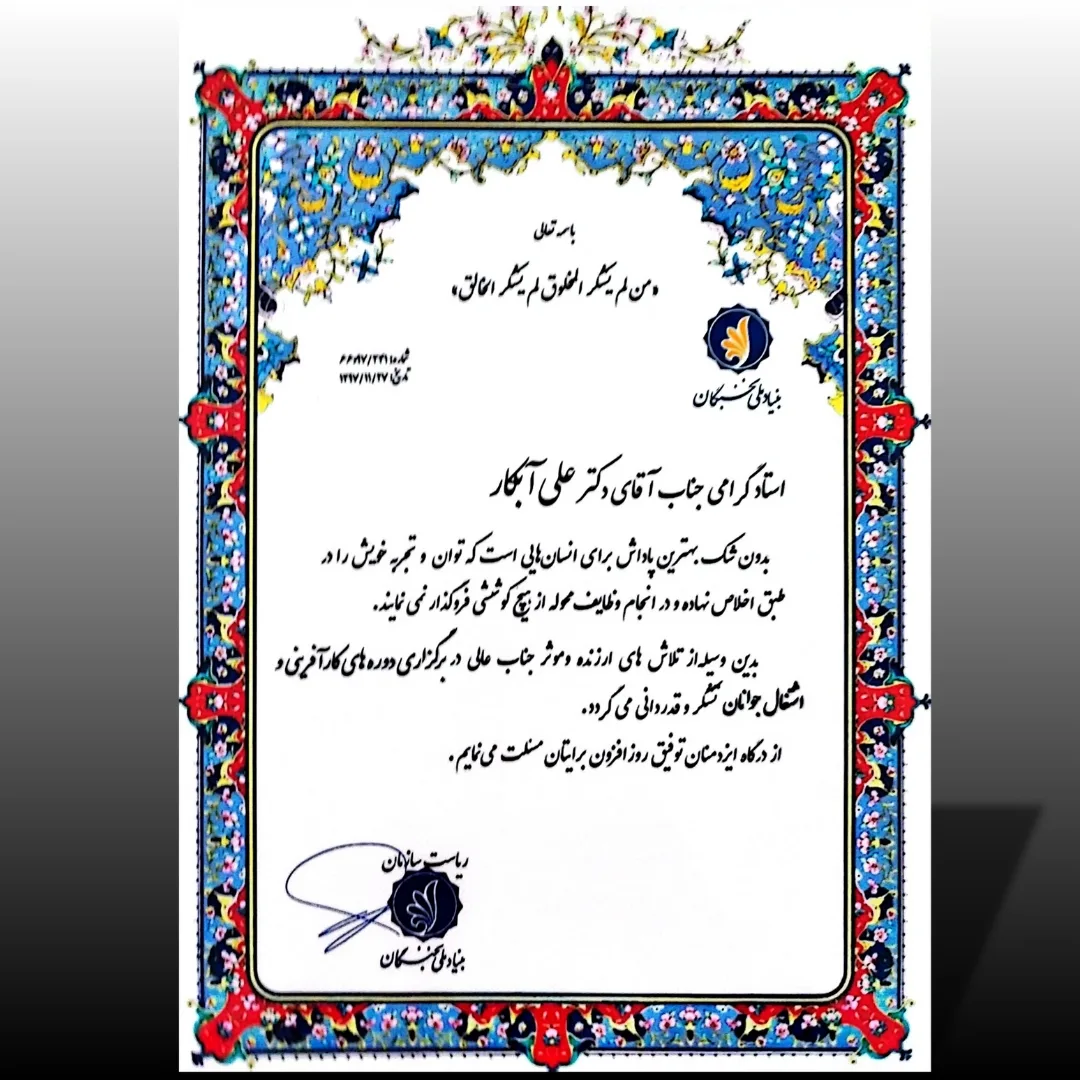 باسمه تعالی
«من لم یشکر المخلوق لم یشکر الخالق»
شماره: ۶۶۹۷/۲۴۱
تاریخ: ۱۳۹۷/۱۱/۲۷
بنیاد ملی نخبگان
استاد گرامی جناب آقای دکتر علی آبکار
بدون شک بهترین پاداش برای انسان‌هایی است که توان و تجربه خویش را در
طبق اخلاص نهاده و در انجام وظایف محوله از هیچ کوششی فروگذار نمی نمایند.
بدین وسیله از تلاش های ارزنده وموثر جناب عالی در برگزاری دوره های کارآفرینی و
اشتغال جوانان تشکر و قدردانی می گردد.
از درگاه ایزدمنان توفیق روزافزون برایتان مسئلت می نمایم.
ریاست سازمان
بنیاد ملی نخبگان